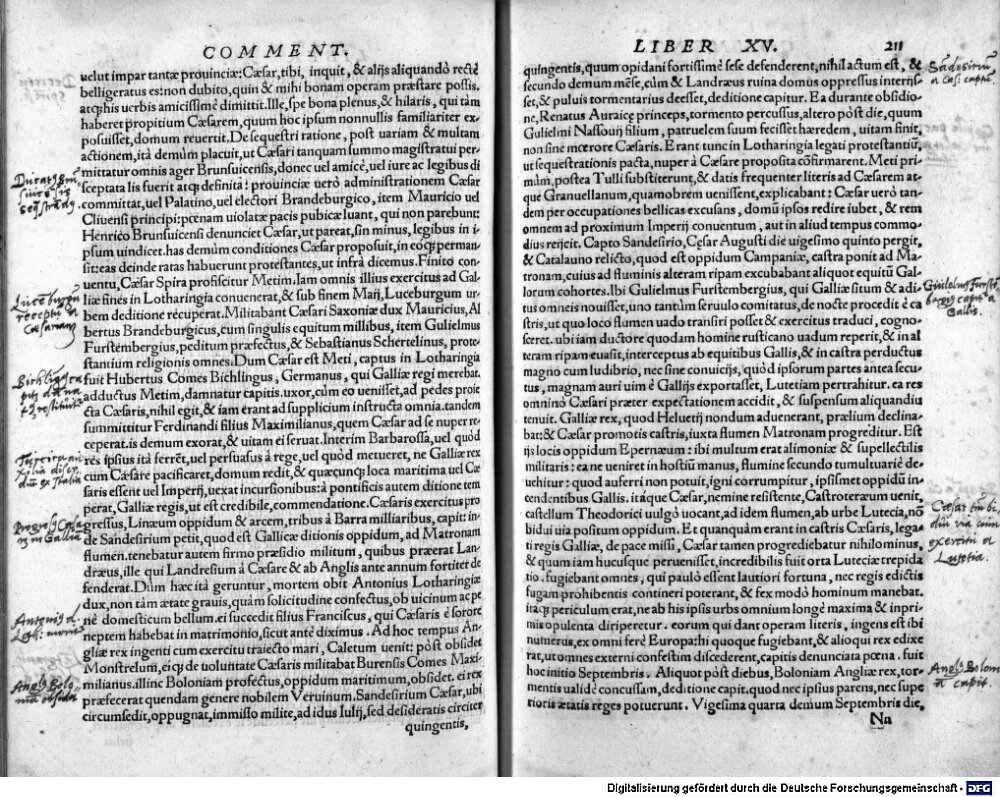 COMMENT.
uelut impar tantæ prouinciæ: Cæsar, tibi, inquit, & alijs aliquando rectè
belligeratus es: non dubito, quin & mihi bonam operam præstare possis.
atq́; his uerbis amicissimè dimittit. Ille, spe bona plenus, & hilaris, qui tàm
haberet propitium Cæsarem, quum hoc ipsum nonnullis familiariter ex
posuisset, domum reuertit. De sequestri ratione, post uariam & multam
actionem, ità demùm placuit, ut Cæsari tanquam summo magistratui per-
mittatur omnis ager Brunsuicensis, donec uel amicè, uel iure ac legibus di
sceptata lis fuerit atq; definita: prouinciæ uerò administrationem Cæsar
committat, uel Palatino, uel electori Brandeburgico, item Mauricio uel
Cliuensi principi: pœnam uiolatæ pacis publicæ luant, qui non parebunt:
Henrico Brunsuicensi denunciet Cæsar, ut pareat, sin minus, legibus in i-
psum uindicet. has demùm conditiones Cæsar proposuit, in eoq́; perman-
sit: eas deinde ratas habuerunt protestantes, ut infrà dicemus. Finito con-
uentu, Cæsar Spira proficiscitur Metim. Iam omnis illius exercitus ad Gal-
liæ fines in Lotharingia conuenerat, & sub finem Maij, Luceburgum ur-
bem deditione recuperat. Militabant Cæsari Saxoniæ dux Mauricius, Al
bertus Brandeburgicus, cum singulis equitum millibus, item Gulielmus
Furstembergius, peditum præfectus, & Sebastianus Schertelinus, prote-
stantium religionis omnes. Dum Cæsar est Meti, captus in Lotharingia
fuit Hubertus Comes Bichlingus, Germanus, qui Galliæ regi merebat.
adductus Metim, damnatur capitis. uxor, cùm eo uenisset, ad pedes proie
cta Cæsaris, nihil egit, & iam erant ad supplicium instructa omnia. tandem
summittitur Ferdinandi filius Maximilianus, quem Cæsar ad se nuper re-
ceperat. is demum exorat, & uitam ei seruat. Interim Barbarossa, uel quòd
res ipsius ità ferrēt, uel persuasus à rege, uel quòd metueret, ne Galliæ rex
cum Cæsare pacificaret, domum redit, & quæcunq; loca maritima uel Cæ
saris essent uel Imperij, uexat incursionibus: à pontificis autem ditione tem
perat, Galliæ regis, ut est credibile, commendatione. Cæsaris exercitus pro
gressus, Linæum oppidum & arcem, tribus à Barra milliaribus, capit: in
de Sandesirium petit, quod est Gallicæ ditionis oppidum, ad Matronam
flumen. tenebatur autem firmo præsidio militum, quibus præerat Lan-
dræus, ille qui Landresium à Cæsare & ab Anglis ante annum fortiter de
fenderat. Dùm hæc ità geruntur, mortem obit Antonius Lotharingiæ
dux, non tàm ætate grauis, quàm solicitudine confectus, ob uicinum ac pe
nè domesticum bellum. ei succedit filius Franciscus, qui Cæsaris è sorore
neptem habebat in matrimonio, sicut antè diximus. Ad hoc tempus An-
gliæ rex ingenti cum exercitu traiecto mari, Caletum uenit: pòst obsidet
Monstrelum, eiq́; de uoluntate Cæsaris militabat Burensis Comes Maxi-
milianus. illinc Boloniam profectus, oppidum maritimum, obsidet. ei rex
præfecerat quendam genere nobilem Veruinum. Sandesirium Cæsar, ubi
circumsedit, oppugnat, immisso milite, ad idus Iulij, sed desideratis circiter
quingentis,
LIBER XV. 211
quingentis, quum opidani fortissimè sese defenderent, nihil actum est, &
secundo demum mēse, cùm & Landræus ruina domus oppressus interijs-
set, & puluis tormentarius deesset, deditione capitur. Ea durante obsidio-
ne, Renatus Auraicę princeps, tormento percussus, altero pòst die, quum
Gulielmi Nassouij filium, patruelem suum fecisset hæredem, uitam finit,
non sine mœrore Cæsaris. Erant tunc in Lotharingia legati protestantiū,
ut sequestrationis pacta, nuper à Cæsare proposita cōfirmarent. Meti pri-
mùm, postea Tulli substiterunt, & datis frequenter literis ad Cæsarem at-
que Granuellanum, quamobrem uenissent, explicabant: Cæsar uerò tan-
dem per occupationes bellicas excusans, domū ipsos redire iubet, & rem
omnem ad proximum Imperij conuentum, aut in aliud tempus commo-
dius reijcit. Capto Sandesirio, Cęsar Augusti die uigesimo quinto pergit,
& Catalauno relicto, quod est oppidum Campaniæ, castra ponit ad Ma-
tronam, cuius ad fluminis alteram ripam excubabant aliquot equitū Gal-
lorum cohortes. Ibi Gulielmus Furstembergius, qui Galliæ situm & adi-
tus omneis nouisset, uno tantùm seruulo comitatus, de nocte procedit è ca
stris, ut quo loco flumen uado transiri posset & exercitus traduci, cogno-
sceret. ubi iam ductore quodam homine rusticano uadum reperit, & in al
teram ripam euasit, interceptus ab equitibus Gallis, & in castra perductus
magno cum ludibrio, nec sine conuicijs, quòd ipsorum partes antea secu-
tus, magnam auri uim è Gallijs exportasset, Lutetiam pertrahitur. ea res
omninò Cæsari præter expectationem accidit, & suspensum aliquandiu
tenuit. Galliæ rex, quod Heluetij nondum aduenerant, prælium declina-
bat: & Cæsar promotis castris, iuxta flumen Matronam progreditur. Est
ijs locis oppidum Epernæum: ibi multum erat alimoniæ & supellectilis
militaris: ea ne ueniret in hostiū manus, flumine secundo tumultuariè de-
uehitur: quod auferri non potuit, igni corrumpitur, ipsismet oppidū in-
cendentibus Gallis. itáque Cæsar, nemine resistente, Castroteræum uenit,
castellum Theodorici uulgò uocant, ad idem flumen, ab urbe Lutetia, nō
bidui uia positum oppidum. Et quanquàm erant in castris Cæsaris, lega-
ti regis Galliæ, de pace missi, Cæsar tamen progrediebatur nihilominus,
& quum iam hucusque peruenisset, incredibilis fuit orta Lutecię trepida
tio. fugiebant omnes, qui paulò essent lautiori fortuna, nec regis edictis
fugam prohibentis contineri poterant, & fex modò hominum manebat.
itaq; periculum erat, ne ab his ipsis urbs omnium longè maxima & inpri-
mis opulenta diriperetur. eorum qui dant operam literis, ingens est ibi
numerus, ex omni ferè Europa: hi quoque fugiebant, & alioqui rex edixe
rat, ut omnes externi confestim discederent, capitis denunciata pœna. fuit
hoc initio Septembris. Aliquot pòst diebus, Boloniam Angliæ rex, tor-
mentis ualidè concussam, deditione capit. quod nec ipsius parens, nec supe
rioris ætatis reges potuerunt. Vigesima quarta demum Septembris die,
Nn
Digitalisierung gefördert durch die Deutsche Forschungsgemeinschaft - DFG